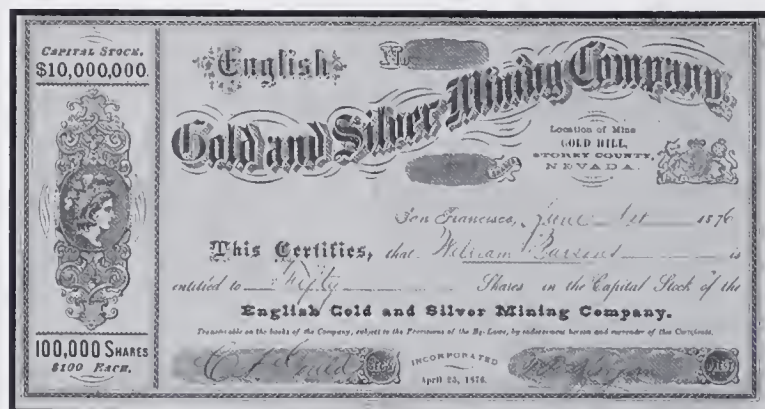 CAPITAL STOCK.
$10,000,000.
100,000 SHARES
$100 EACH.
English
No.
Gold and Silver Mining Company.
Location of Mine
GOLD HILL,
STOREY COUNTY,
NEVADA.
San Francisco, June 1st 1876
This Certifies, that William Parsons is
entitled to Fifty Shares in the Capital Stock of the
English Gold and Silver Mining Company.
Transferable on the books of the Company, subject to the Provisions of the By-Laws, by endorsement hereon and surrender of this Certificate.
SECY.
INCORPORATED
April 25, 1876.
PREST.